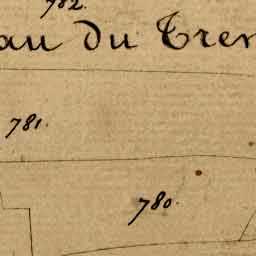 782.
au du Tren
781.
780.